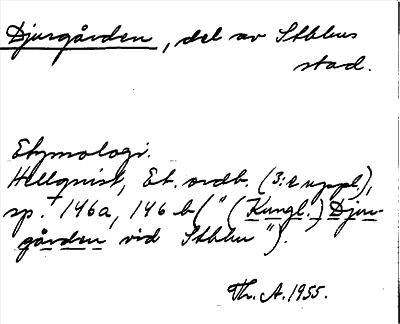 Djurgården, del av Sthlms
stad.
Etymologi.
Hellquist, Et. ordb. (3:e uppl.),
sp. 146a, 146 b (" (Kungl.) Djur-
gården vid Sthlm ").
Th. A. 1955.